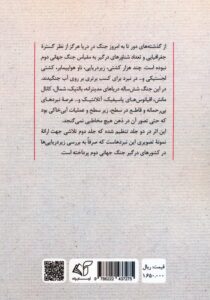 از گذشته‌های دور تا به امروز جنگ در دریا هرگز از نظر گسترهٔ
جغرافیایی و تعداد شناورهای درگیر به مقیاس جنگ جهانی دوم
نبوده است. چند هزار کشتی، زیردریایی، ناو هواپیمابر، کشتی
لجستیکی و... در نبرد برای کسب برتری بر روی آب جنگیدند.
در این جنگ شش‌ساله دریاهای مدیترانه، بالتیک، شمال، کانال
مانش، اقیانوس‌های پاسیفیک، آتلانتیک و... عرصهٔ نبردهای
بی‌رحمانه و قاطع در سطح، زیر سطح و عملیات آبی‌خاکی بود
که حتی تصور آن در ذهن هیچ مخاطبی نمی‌گنجد.
این اثر در دو جلد تنظیم شده که جلد دوم تلاشی جهت ارائهٔ
نمونهٔ تصویری این نبردهاست که صرفاً به بررسی زیردریایی‌ها
در کشورهای درگیر جنگ جهانی دوم پرداخته است.
قیمت: ریال
۱،۶۵۰،۰۰۰
9 786222 437275